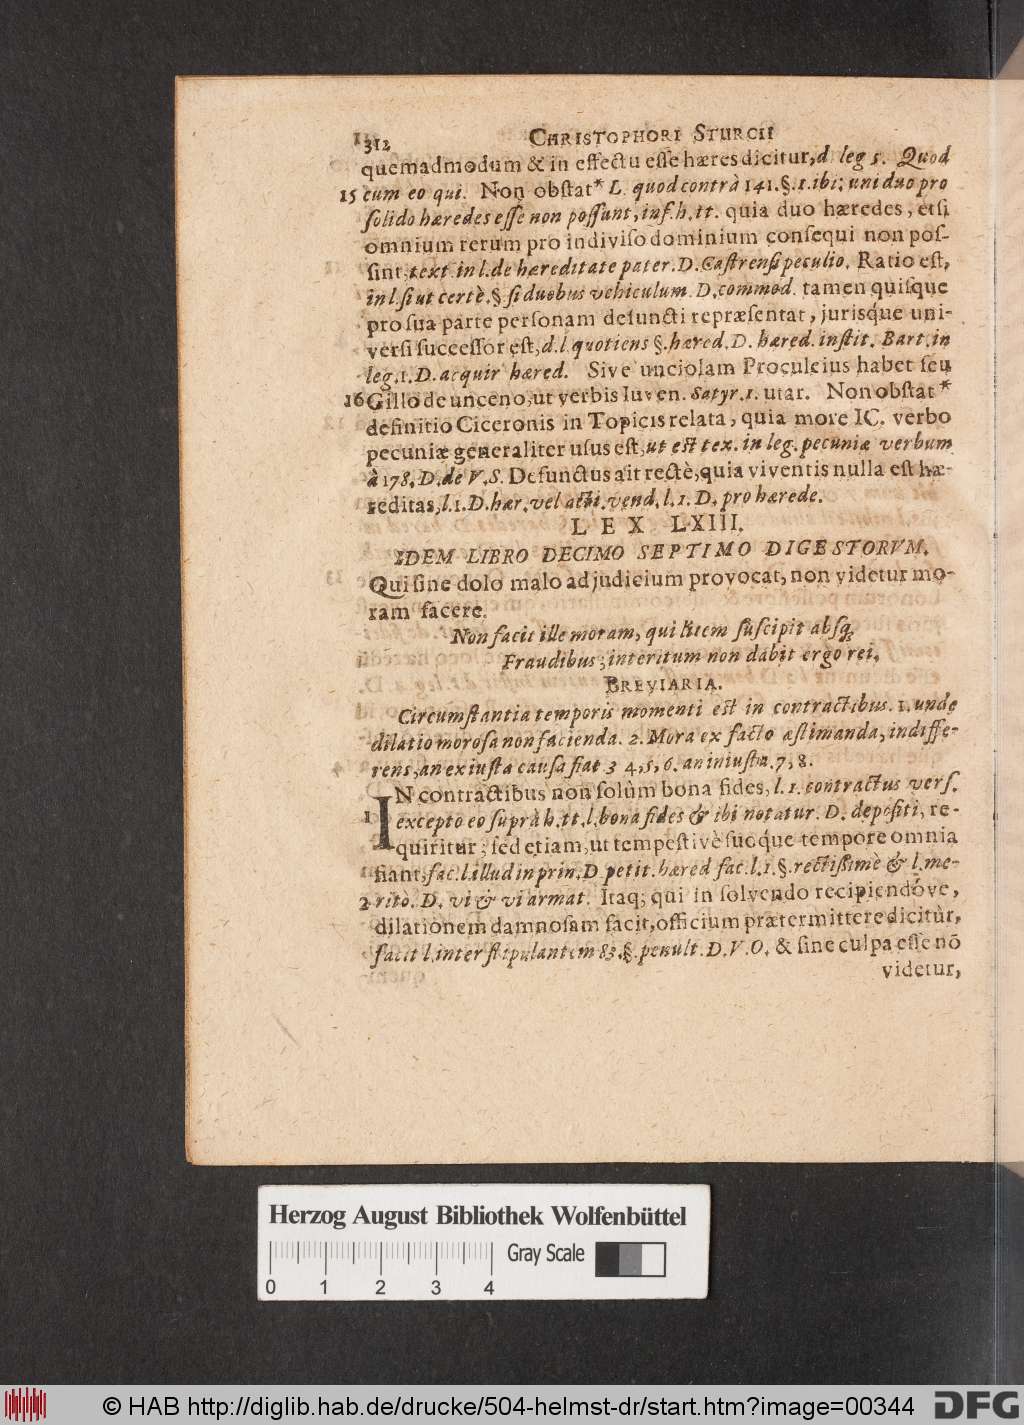 312 CHRISTOPHORI STURCII
quemadmodum & in effectu esse hæres dicitur, d. leg 5. Quod
15 cum eo qui. Non obstat* L. quod contrà 141. §. 1. ibi; uni duo pro
solido hæredes esse non possunt, inf. h. tt. quia duo hæredes, etsi
omnium rerum pro indiviso dominium consequi non pos-
sint, text. in l. de hæreditate pater. D. Castrensi peculio. Ratio est,
in l. si ut certè. § si duobus vehiculum. D. commod. tamen quisque
pro sua parte personam defuncti repræsentat, jurisq́ue uni-
versi successor est, d. l. quotiens §. hæred. D. hæred. instit. Bart. in
leg. 1. D. acquir hæred. Sive unciolam Proculeius habet seu
16 Gillo de unceno, ut verbis Iuven. Satyr. 1. utar. Non obstat*
definitio Ciceronis in Topicis relata, quia more IC. verbo
pecuniæ generaliter usus est, ut est tex. in leg. pecuniæ verbum
à 178. D. de V. S. Defunctus ait rectè, quia viventis nulla est hæ-
reditas, l. 1. D. hær. vel acti. vend. l. 1. D. pro hærede.
LEX LXIII.
IDEM LIBRO DECIMO SEPTIMO DIGESTORVM.
Qui sine dolo malo ad judicium provocat, non videtur mo-
ram facere.
Non facit ille moram, qui litem suscipit absq;
Fraudibus; interitum non dabit ergo rei.
BREVIARIA.
Circumstantia temporis momenti est in contractibus. 1. unde
dilatio morosa non facienda. 2. Mora ex facto æstimanda, indiffe-
rens, an ex iusta causa fiat 3 4, 5, 6. an iniusta. 7, 8.
1 IN contractibus non solùm bona fides, l. 1. contractus vers.
excepto eo suprà h. tt. l. bona fides & ibi notatur. D. depositi, re-
quiritur; sed etiam, ut tempestivè suoq́ue tempore omnia
fiant, fac. l. illud in prin. D petit. hæred fac. l. 1. §. rectissimè & l. me-
2 rito. D. vi & vi armat. Itaq; qui in solvendo recipiendóve,
dilationem damnosam facit, officium prætermittere dicitur,
facit l. inter stipulantem 83. §. penult. D. V. O. & sine culpa esse nō
videtur,
Herzog August Bibliothek Wolfenbüttel
Gray Scale
0 1 2 3 4
© HAB http://diglib.hab.de/drucke/504-helmst-dr/start.htm?image=00344
DFG